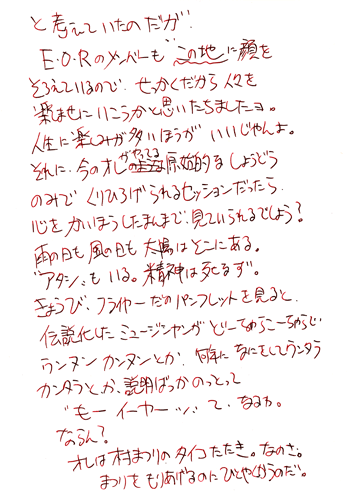 と考えていたのだが
E・O・Rのメンバーも"この地"に顔を
そろえているので、せっかくだから人々を
楽ませにいこうかと思いたちましたョ。
人生に楽しみが多いほうがいいじゃんよ。
それに、今のオレがやってる原始的な しょうどう
のみで くりひろげられるセッションだったら
心をかいほうしたまんまで、見ていられるでしょう?
雨の日も風の日も太陽はそこにある。
"アタシ"も いる。精神は死なず。
きょうび、フライヤーだのパンフレットを見ると、
伝説化した ミュージシャンが どーちゃらこーちゃらで
ウンヌン カンヌンとか、何年に なにをしてウンタラ
カンタラとか、説明ばっかのっとって
"もー イーヤーッ"、て、なるわ。
ならん?
オレは村まつりの タイコたたき。なのさ。
まつりを もりあげるのに ひとやくかうのだ。